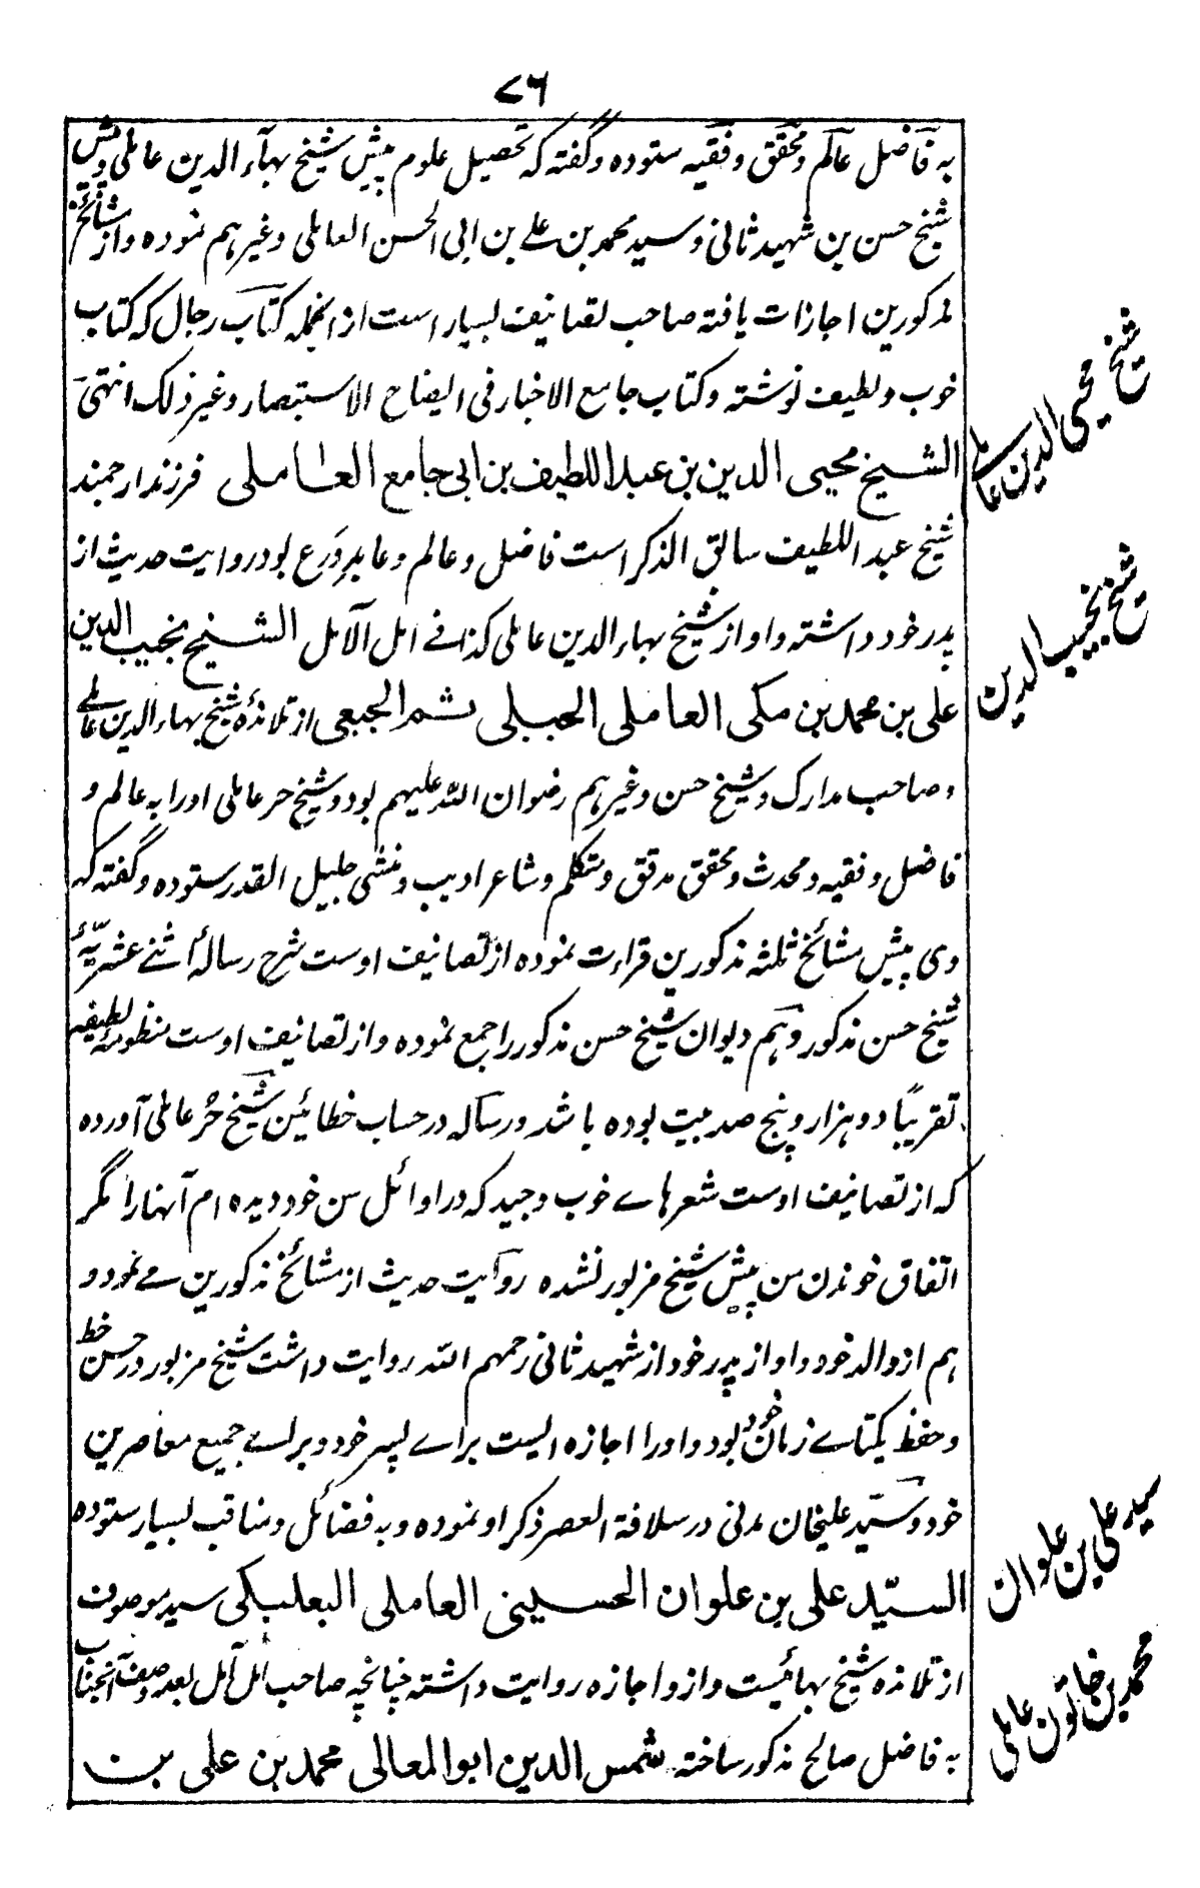 ۷۶
به فاضل عالم و محقق و فقیه ستوده و گفته که تحصیل علوم پیش شیخ بهآء الدین عاملی و پیش
شیخ حسن بن شهید ثانی و سید محمد بن علے بن ابی الحسن العاملی و غیر هم نموده و از مشائخ
مذکورین اجازات یافته صاحب تصانیف بسیار است از انجمله کتاب رجال که کتاب
خوب و لطیف نوشته و کتاب جامع الاخبار فی ایضاح الاستبصار و غیر ذلک انتهیٰ
الشیخ محیی الدین بن عبد اللطیف بن ابی جامع العاملی فرزند ارجمند
شیخ عبد اللطیف سابق الذکر است فاضل و عالم و عابد وَرِع بود روایت حدیث از
پدر خود داشته و او از شیخ بهاء الدین عاملی کذا فے امل الآمل الشیخ نجیب الدین
علی بن محمد بن مکی العاملی الجبیلی ثم الجبعی از تلامذهٔ شیخ بهاء الدین عاملے
و صاحب مدارک و شیخ حسن و غیر هم رضوان الله علیهم بود و شیخ حر عاملی او را به عالم و
فاضل و فقیه و محدث و محقق مدقق و متکلم و شاعر ادیب و منشی جلیل القدر ستوده و گفته که
وی پیش مشائخ ثلثه مذکورین قراءت نموده از تصانیف اوست شرح رسالهٔ اثنے عشریّهٔ
شیخ حسن مذکور و هم دیوان شیخ حسن مذکور را جمع نموده و از تصانیف اوست منظومهٔ لطیفه
تقریباً دو هزار و پنج صد بیت بوده باشد و رساله در حساب خطائین شیخ حُر عاملی آورده
که از تصانیف اوست شعرهاے خوب و جید که در اوائل سن خود دیده ام آنها را مگر
اتفاق خواندن من پیش شیخ مزبور نشده روایت حدیث از مشائخ مذکورین مے نمود و
هم از والد خود و او از پدر خود از شهید ثانی رحمهم الله روایت داشت شیخ مزبور در حسن خط
و حفظ یکتاے زمان خود بود و او را اجازه ایست براے پسر خود و براے جمیع معاصرین
خود و سیّد علیخان مدنی در سلافة العصر ذکر او نموده و به فضائل و مناقب بسیار ستوده
السیّد علی بن علوان الحسینی العاملی البعلبکی سید موصوف
از تلامذه شیخ بهائیست و ازو اجازه روایت داشته چنانچه صاحب امل آمل بعد وصف آنجناب
به فاضل صالح مذکور ساخته شمس الدین ابو المعالی محمد بن علی بن
شیخ محیی الدین عاملے
شیخ نجیب الدین
سید علی بن علوان
محمد بن خاتون عاملی